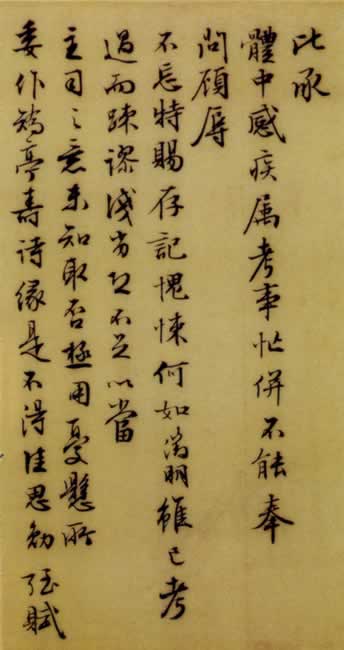 比承
體中感疾属考事忙併不能奉
問顾辱
不忘特賜存記愧悚何如明雖已考
過而踈謬淺劣恐不足以當
主司之意未知取否極用憂懸所
委作亭壽詩緣是不得佳思勉强賦